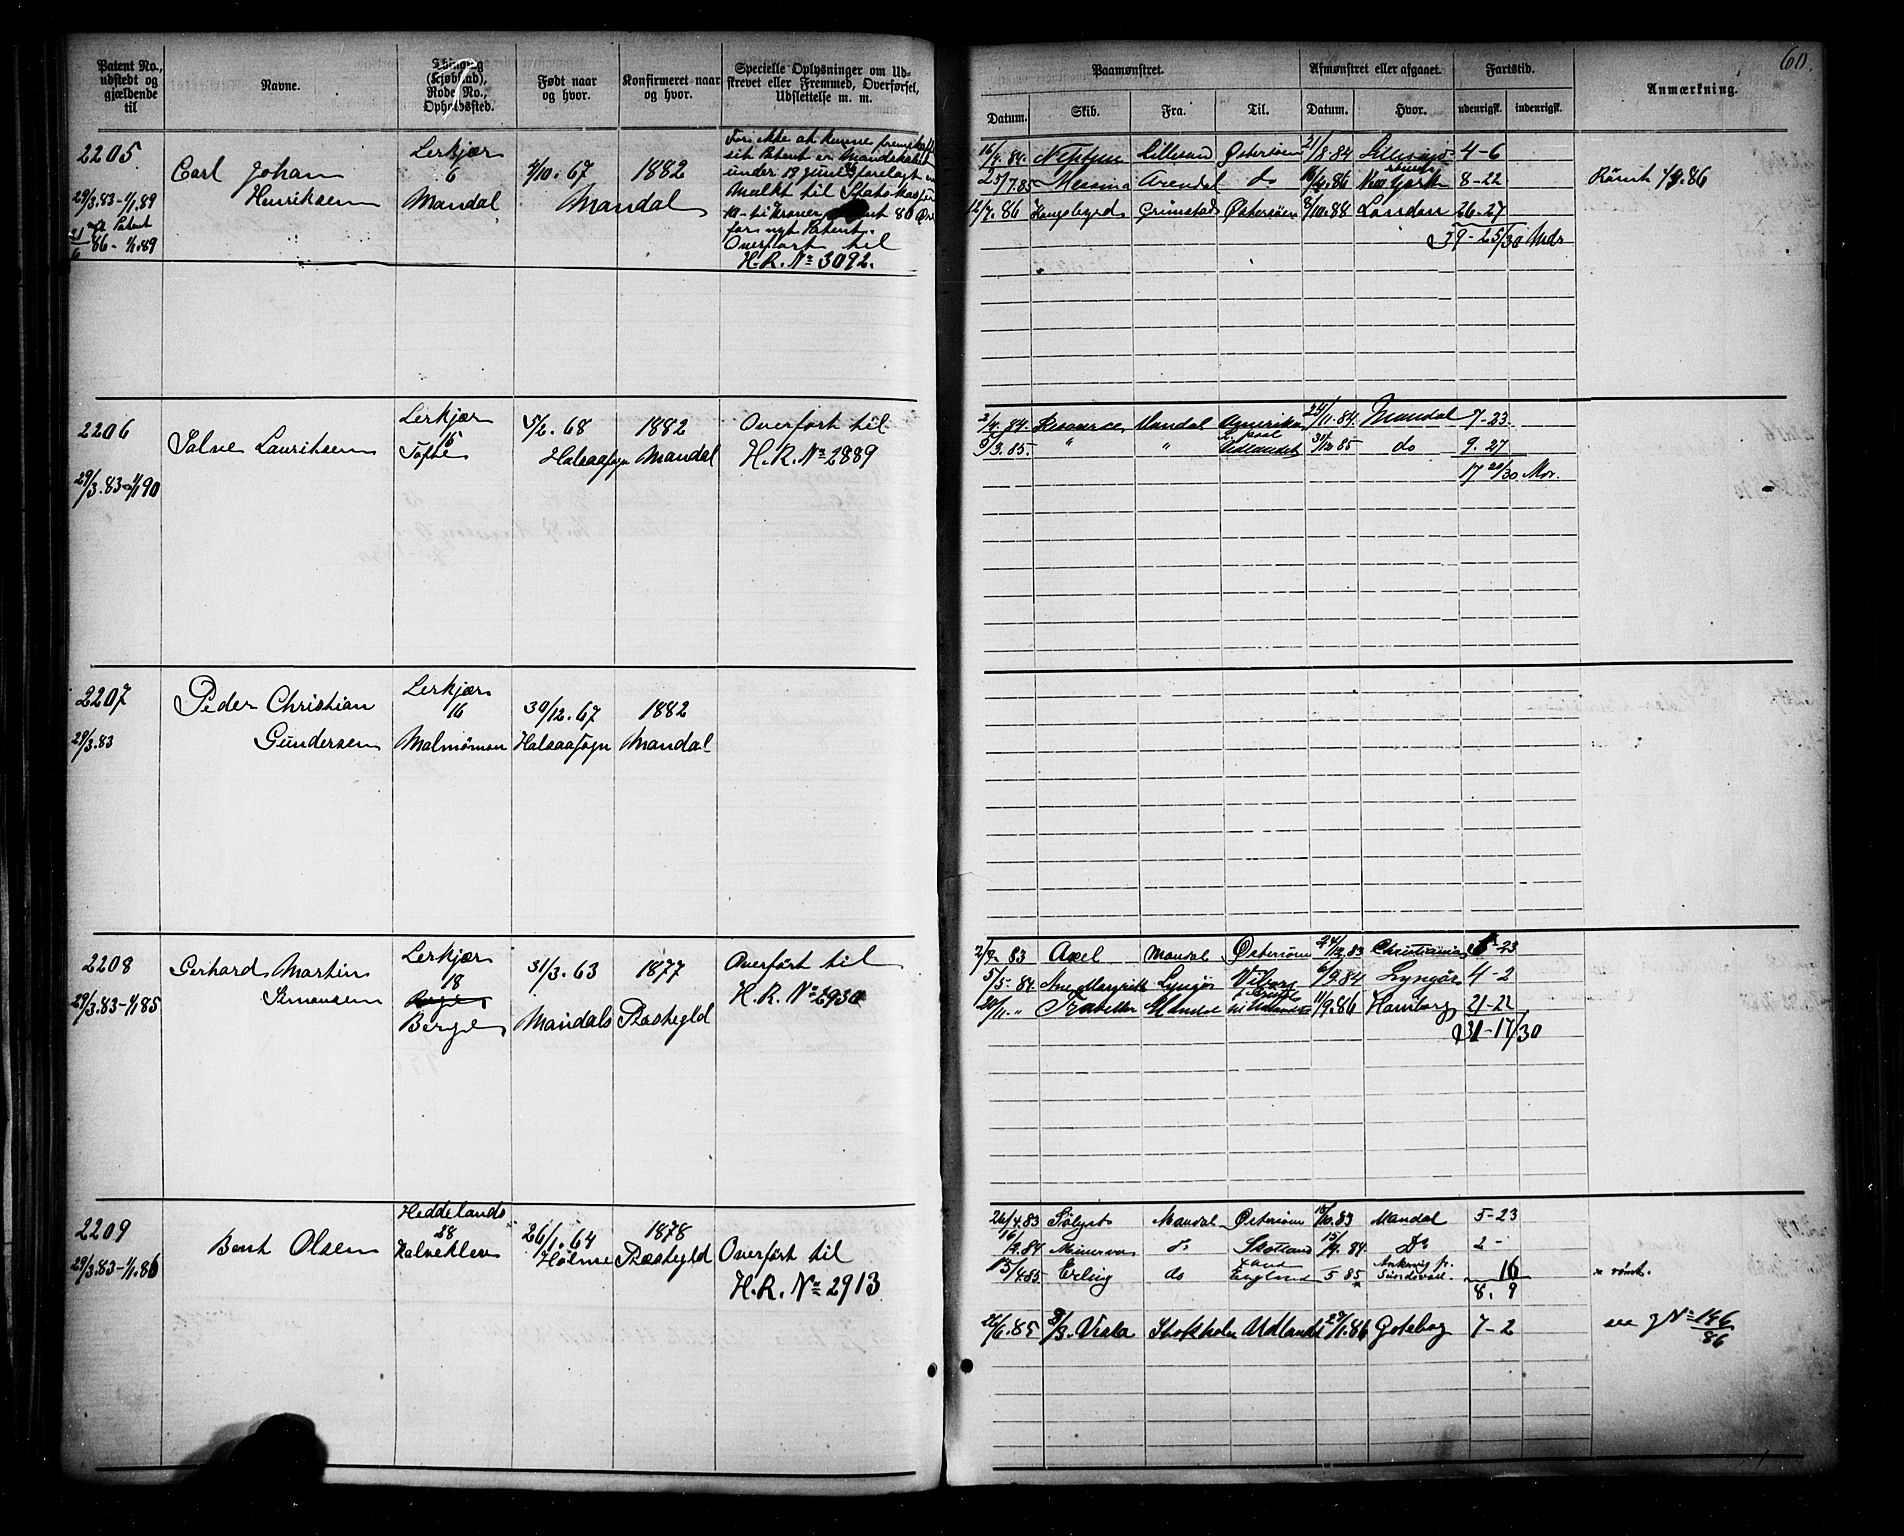 60.
Patent No., udstedt og gjældende til
Navne.
(Kjøbstad), Rode No., Opholdssted.
Født naar og hvor.
Konfirmeret naar og hvor.
Specielle Oplysninger om Udskrevet eller Fremmed, Overførsel, Udslettelse m. m.
Paamønstret.
Datum. Skib. Fra. Til.
Afmønstret eller afgaaet.
Datum. Hvor.
Fartstid.
udenrigsk. indenrigsk.
Anmærkning.
2205
29/3.83-1/1.89
Patent
21/6 86 - 1/1.89
Carl Johan
Henriksen
Lerkjær
6
Mandal
7/10.67
Mandal
1882
For ikke at kunne
sit Patent er Mandskabet
under 18 Juni forelagt
Mulkt til Statskassen
10 - ti kroner 80 Øre
for nyt Patent.
Overført til
H.R. No 3092.
16/4.84. Neptun Lillesand Østersøen 21/8.84 Lillesand 4-6
25/7.85 Messina Arendal do 16/4.86 New York 8-22 Rømt
12/7.86 Grimstad Østersøen 8/10.88 London 26-27
39-25/30 Mdr
2206
29/3.83-1/1.90
Salve Lauritsen
Lerkjær
15
Tofte
5/2.68
Halsaa sogn
1882
Mandal
Overført til
H.R. No 2889
2/4.84. Ressource Mandal Amerika 24/11.84. Mandal 7-23
5/3.85. " " Udlandet 31/12 85 do 9.27
17 20/30 Mdr.
2207
29/3.83
Peder Christian
Gundersen
Lerkjær
16
Malmømon
30/12.67
Halsaa sogn
1882
Mandal
2208
29/3.83-1/1.85
Gerhard Martin
Simonsen
Lerkjær
18
Berge
31/3.63
1877
Mandals Præstegjld
Overført til
H.R. No 2930
83 Axel Mandal Østersøen 24/12.83 Christiania 5-23
5/5-84 Ane Margrethe Lyngør Viborg 6/9.84 Lyngør 4-2
20/11." Mandal 11/9.86 Hamborg 21-22
31-17/30
2209
29/3.83-1/1.86
Bent Olsen
Heddelands
28
Kalvehleven
26/1.64
1878
Holme Præstegjld
Overført til
H.R. No 2913
26/4.83 Sølyst Mandal Østersøen 83 Mandal 5-23
16/2.84 Minerva do Skotland 15/4.84. Do 2 -
15/4.85 Erling do England 5 85 Sundsvall. 16 x rømt.
8. 9
26/6.85 Viola Stokholm Udlandet 29/1.86 Goteborg 7-2 see J No 146/86